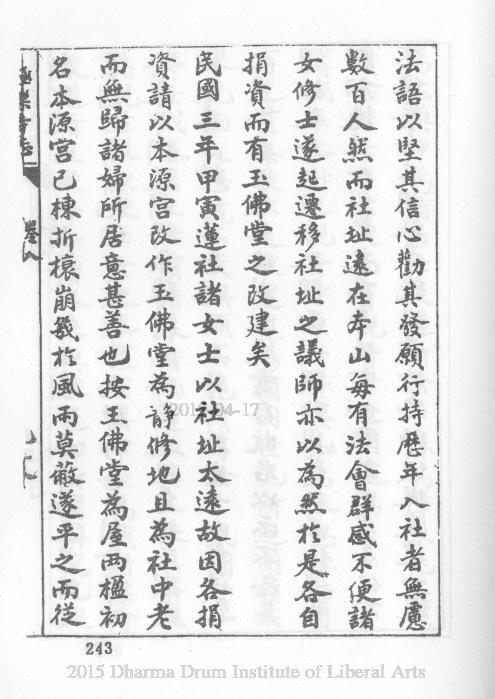 法語以堅其信心勸其發願行持歷年入社者無慮
數百人然而社址遠在本山每有法會群感不便諸
女修士遂起遷移社址之議師亦以為然於是各自
捐資而有玉佛堂之改建矣
民國三年甲寅蓮社諸女士以社址太遠故因各捐
資請以本源宮改作玉佛堂為靜修地且為社中老
而無歸諸婦所居意甚善也按玉佛堂為屋兩楹初
名本源宮已棟折榱崩幾於風雨莫蔽遂平之而從
極樂寺志
卷八
243
2015 Dharma Drum Institute of Liberal Arts